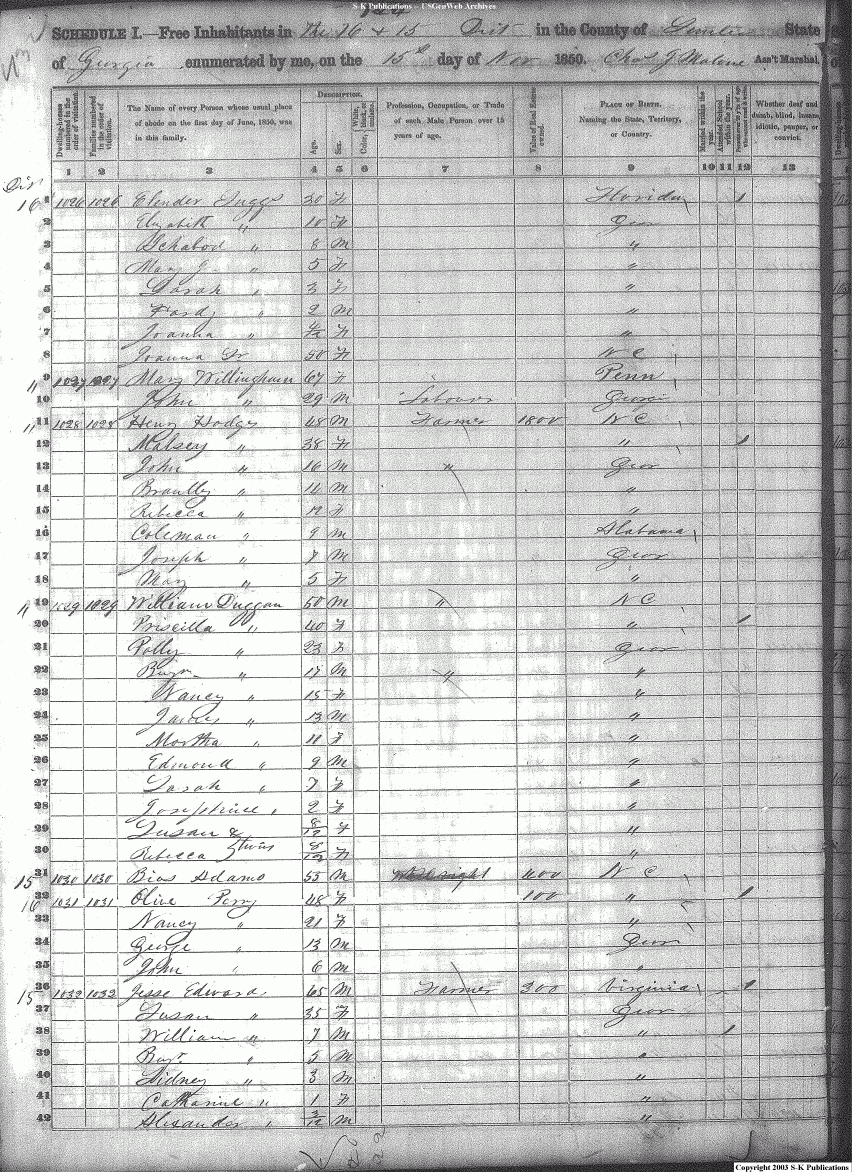 S-K Publications - USGenWeb Archives
SCHEDULE I.—Free Inhabitants in The 16 & 15 Dist in the County of State
of Georgia enumerated by me, on the 15th day of Nov 1850. Chas J Malone Ass't Marshal.
Dwelling-houses numbered in the order of visitation.
Families numbered in the order of visitation.
The Name of every Person whose usual place of abode on the first day of June, 1850, was in this family.
Description.
Age.
Sex.
White, black, or mulatto.
Color,
Profession, Occupation, or Trade of each Male Person over 15 years of age.
Value of Real Estate owned.
Place of Birth. Naming the State, Territory, or Country.
Married within the year.
Attended School within the year.
Whether deaf and dumb, blind, insane, idiotic, pauper, or convict.
1 2 3 4 5 6 7 8 9 10 11 12 13
16 1 1026 1026 Elender 30 F Florida
2 Elizabeth " 10 F Geor
3 " 8 M "
4 Mary J " 5 F "
5 Sarah " 3 F "
6 " 2 M "
7 Joanna " F "
8 Joanna Sr 50 F N C
" 9 1027 1027 Mary Willingham 67 F Penn
10 John " 29 M Labourer Georgi
" 11 1028 1028 Henry Hodges 48 M Farmer 1800 N C
12 Malsey " 38 F "
13 John " 16 M " Geor
14 Brantly " 14 M "
15 Rebecca " 12 F "
16 Coleman " 9 M Alabama
17 Joseph " 7 M Geor
18 Mary " 5 F "
" 19 1029 1029 William Duggan 50 M " N C
20 Priscilla " 40 F "
21 Polly " 23 F Geor
22 " 17 M " "
23 Nancy " 15 F "
24 James " 13 M "
25 Martha " 11 F "
26 Edmond " 9 M "
27 Sarah " 7 F "
28 Josephine " 2 F "
29 Susan & 8/12 F "
30 Rebecca } twins 8/12 F "
15 31 1030 1030 Bias Adams 53 M 400 N C
16 32 1031 1031 Olive Perry 48 F 100 "
33 Nancy " 21 F "
34 George " 13 M Geor
35 John " 6 M "
15 36 1032 1032 Jesse Edward 65 M Farmer 300 Virginia
37 Susan " 35 F Geor
38 William " 7 M "
39 " 5 M "
40 Sidney " 3 M "
41 Catharine " 1 F "
42 Alexander " 3/12 M "
Copyright 2003 S-K Publications